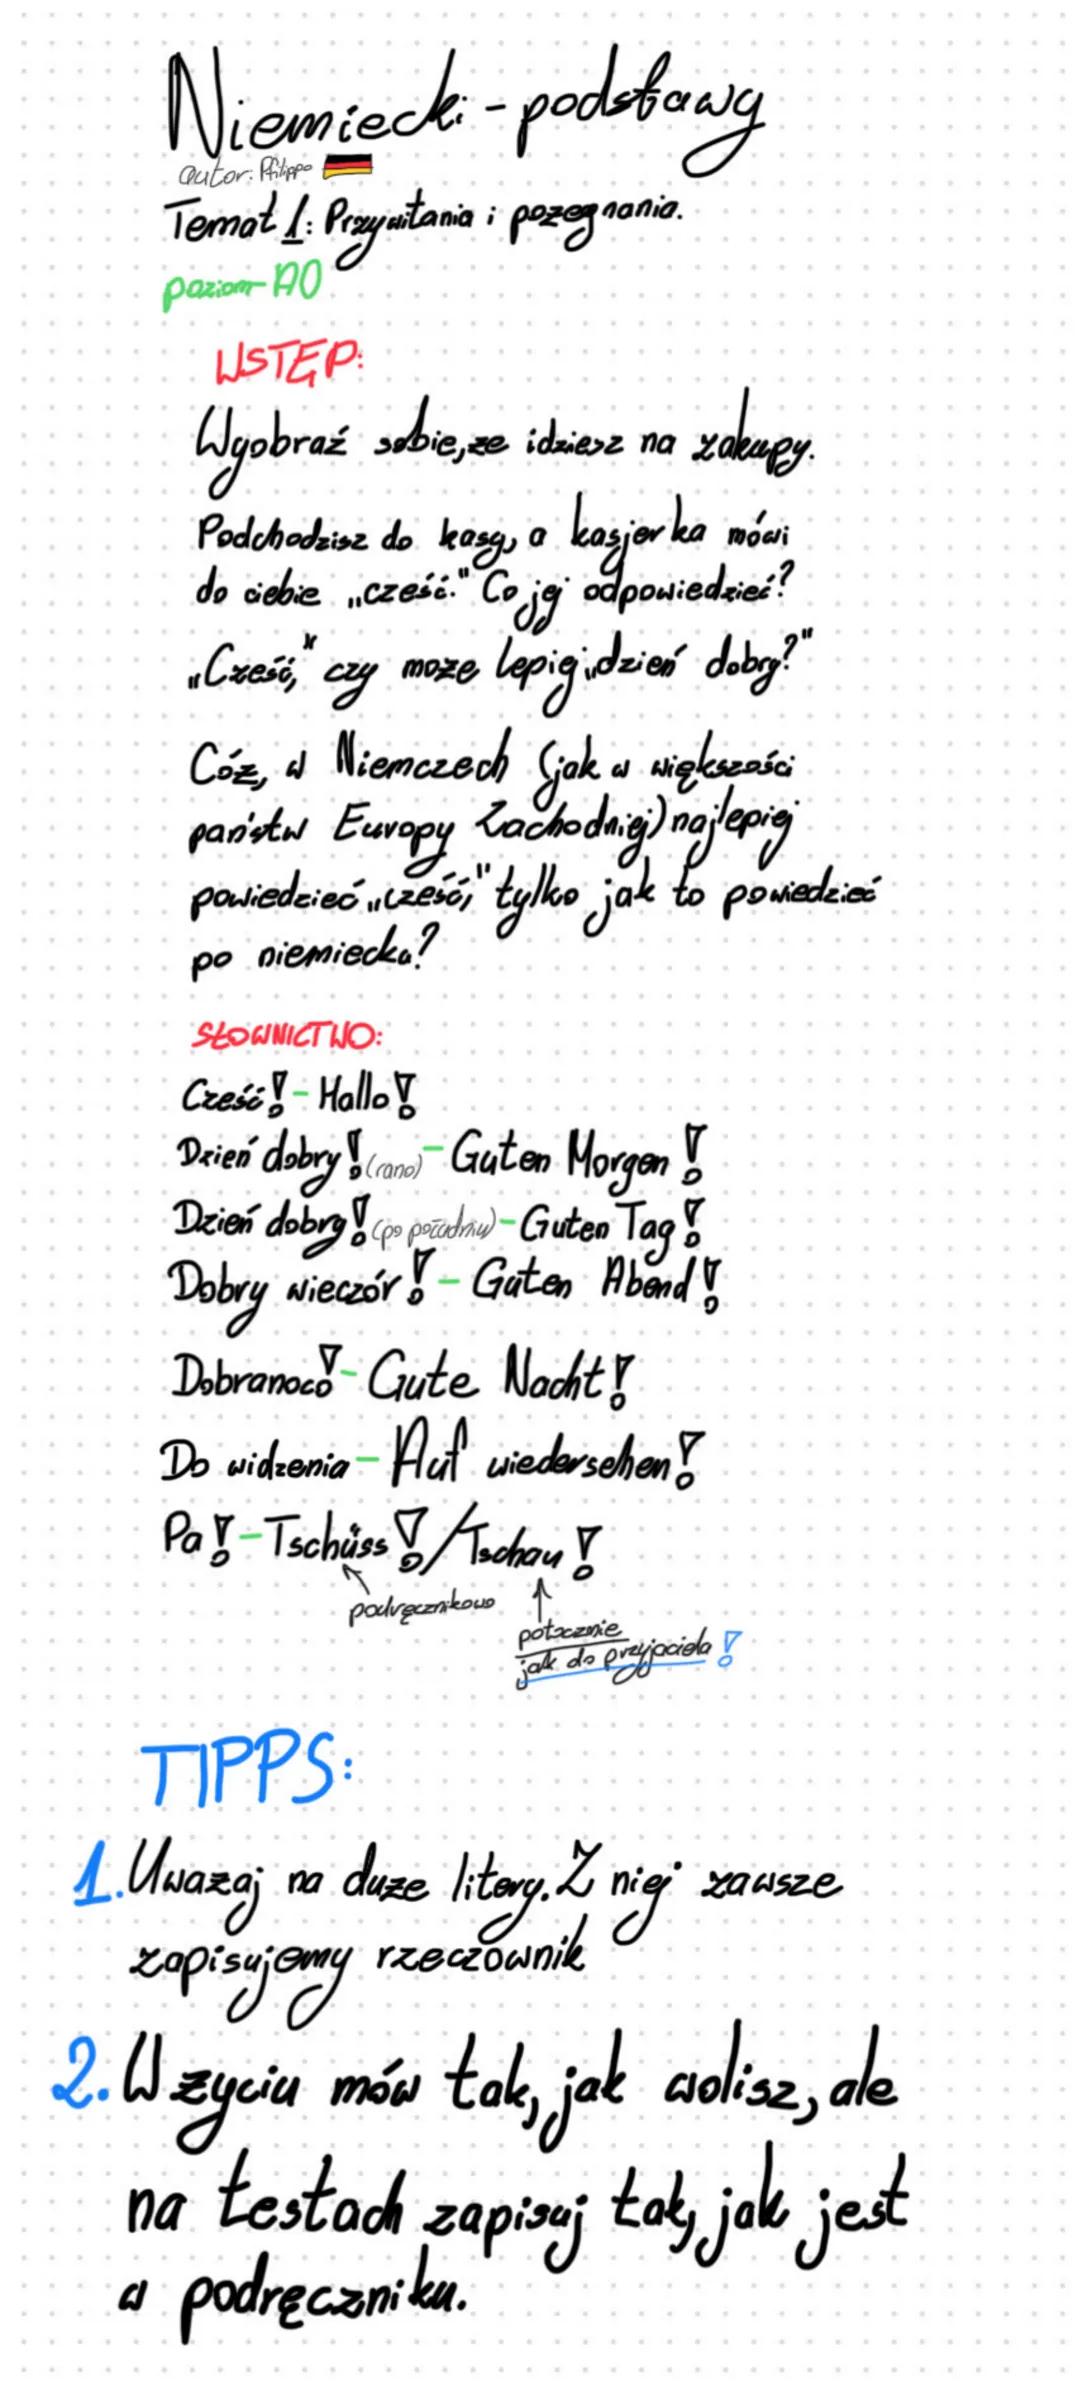 Niemiecki - podstawy
autor: Philippo
Temat 1: Przywitania i pożegnania.
poziom - A0
WSTĘP:
Wyobraź sobie, że idziesz na zakupy.
Podchodzisz do kasy, a kasjerka mówi
do ciebie „cześć." Co jej odpowiedzieć?
„Cześć," czy może lepiej „dzień dobry?"
Cóż, w Niemczech (jak w większości
państw Europy Zachodniej) najlepiej
powiedzieć „cześć," tylko jak to powiedzieć
po niemiecku?
SŁOWNICTWO:
Cześć! - Hallo!
Dzień dobry! (rano) - Guten Morgen!
Dzień dobry! (po południu) - Guten Tag!
Dobry wieczór! - Guten Abend!
Dobranoc! - Gute Nacht!
Do widzenia - Auf wiedersehen!
Pa! - Tschüss! / Tschau!
podręcznikowo
potocznie
jak do przyjaciela!
TIPPS:
1. Uważaj na duże litery. Z niej zawsze
zapisujemy rzeczownik
2. W życiu mów tak, jak wolisz, ale
na testach zapisuj tak, jak jest
w podręczniku.